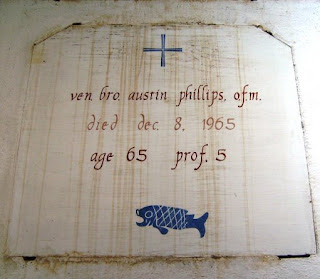 ven. bro. austin phillips, o.f.m.
died dec. 8, 1965
age 65 prof. 5